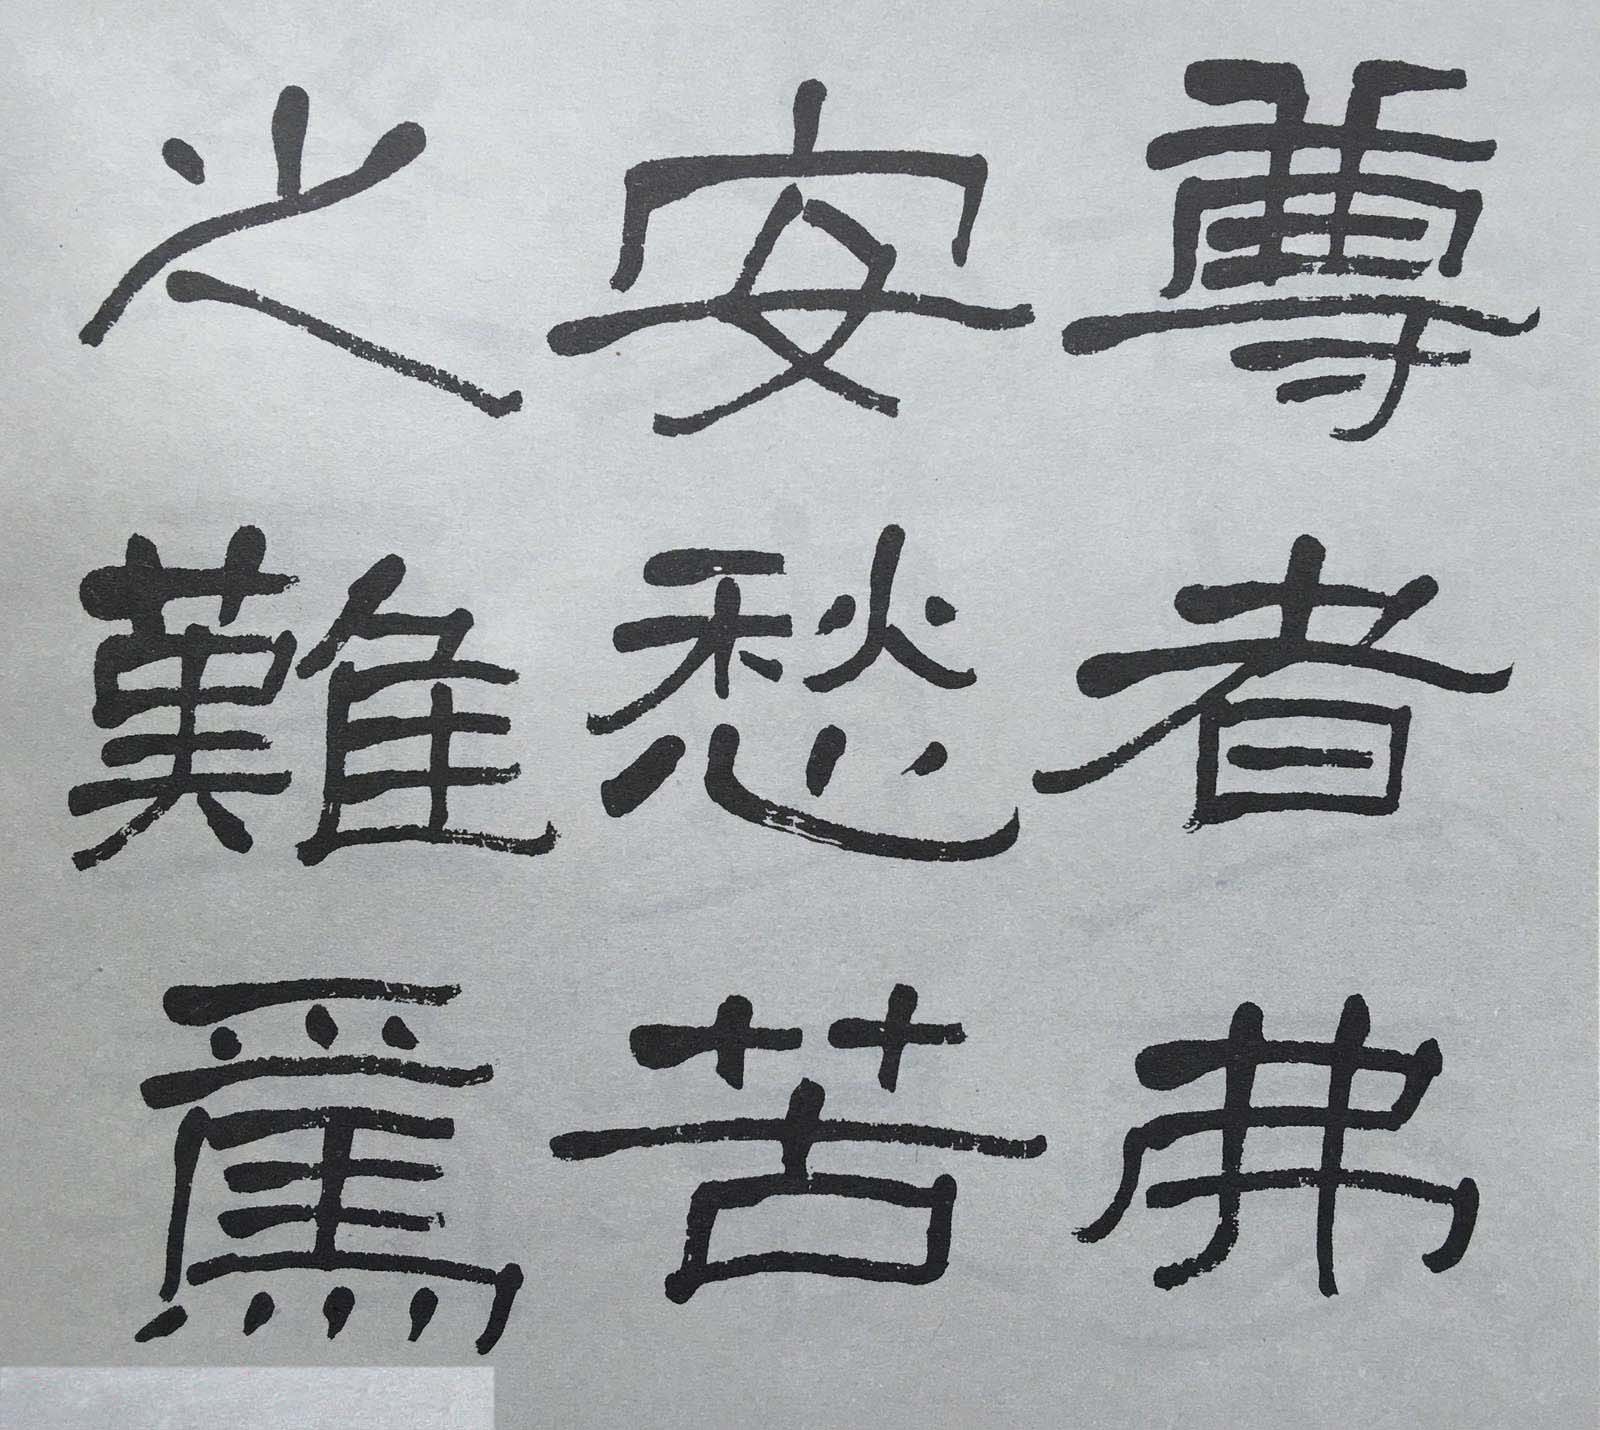 尊者弗
安愁苦
之難焉